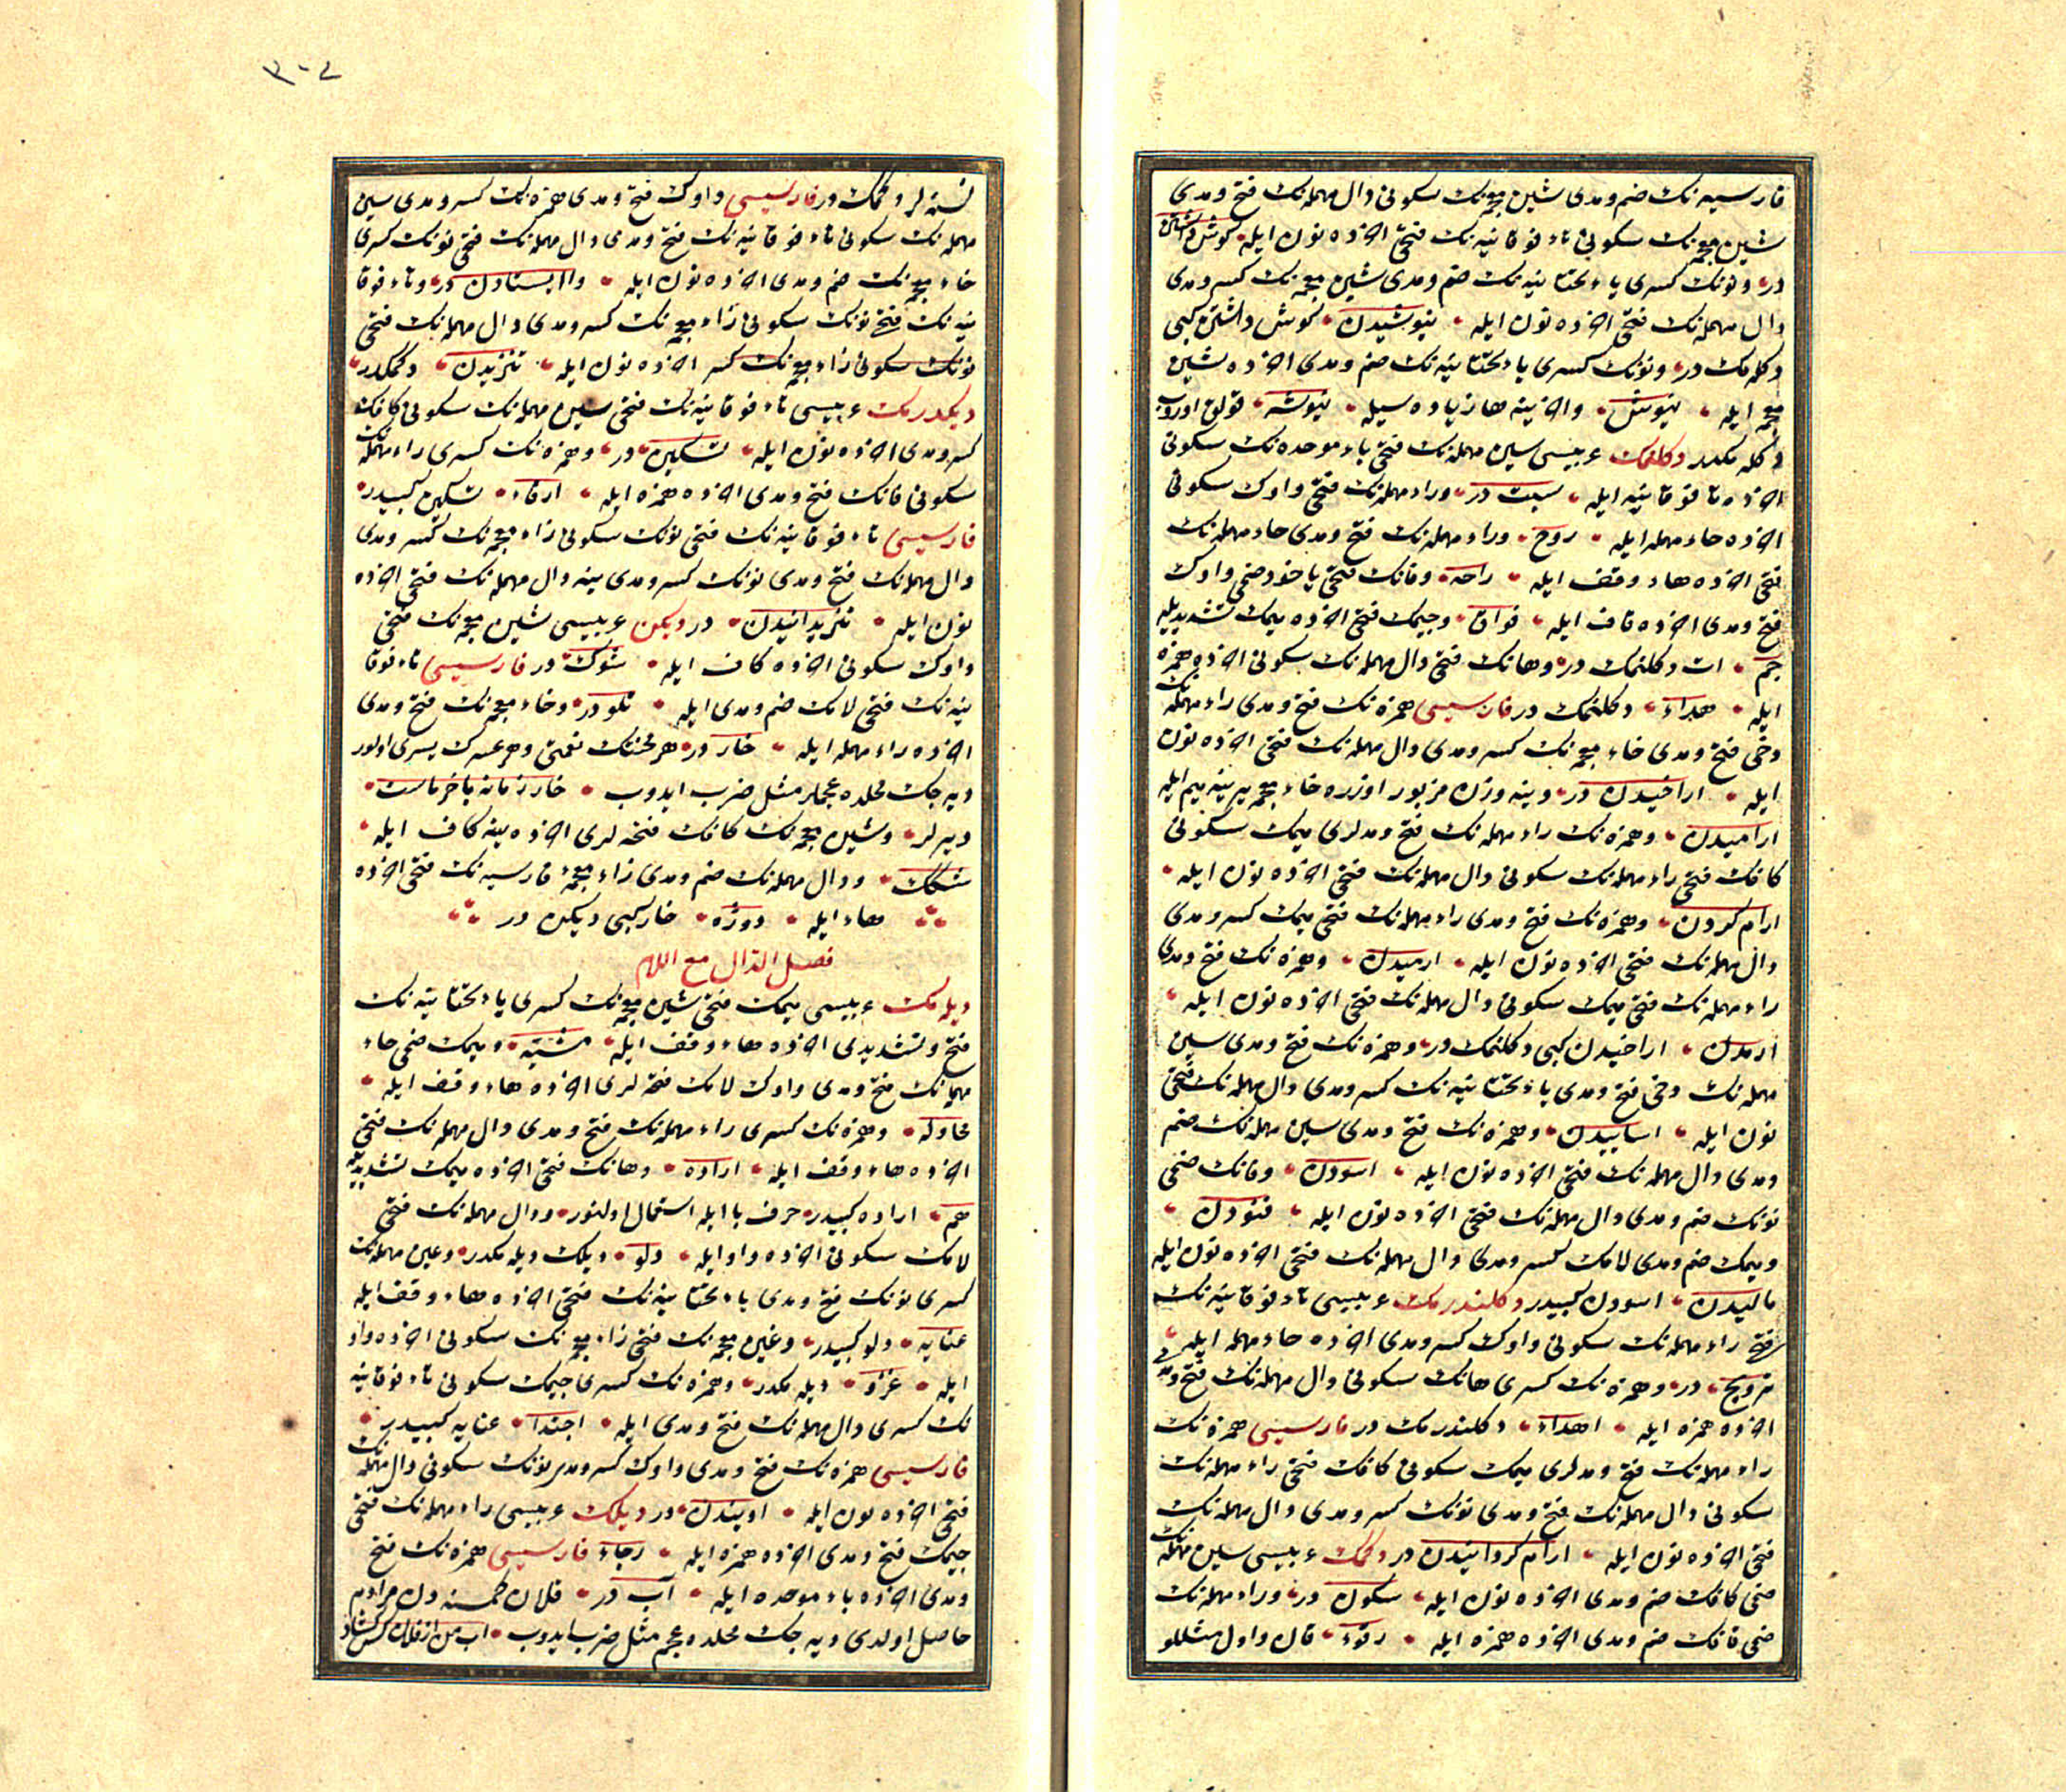 فارسیه نك ضم و مدی شین معجمه نك سكونی دال مهمله نك فتح و مدی
شین معجمه نك سكونی تاء فوقانیه نك فتحی اخرده نون ایله كوش داشتن
در ونونك كسری یاء تحتانیه نك ضم و مدی شین معجمه نك كسر و مدی
دال مهمله نك فتحی اخرده نون ایله نیوشیدن كوش داشتن كبی
دكله مك در ونونك كسری یاء تحتانیه نك ضم و مدی اخرده شین
معجمه ایله نیوش واخرینه ها زیاده سیله نیوشه قولق اوروب
دكله مكدر دكلنمك عربیسی سین مهمله نك فتحی باء موحده نك سكونی
اخرده تا فوقانیه ایله سبت در وراء مهمله نك فتحی واوك سكونی
اخرده حاء مهمله ایله روح وراء مهمله نك فتح و مدی حاء مهمله نك
فتحی اخرده هاء وقف ایله راحه وفانك فتحی یاخود ضمی واوك
فتح و مدی اخرده قاف ایله فواق وجیمك فتحی اخرده میمك تشدیدیله
جم ات دكلنمك در وهانك فتحی دال مهمله نك سكونی اخرده همزه
ایله هداء دكلنمك در فارسیسی همزه نك فتح و مدی راء مهمله نك
دخی فتح و مدی خاء معجمه نك كسر و مدی دال مهمله نك فتحی اخرده نون
ایله اراخیدن در وینه وزن مزبور اوزره خاء معجمه یرینه میم ایله
ارامیدن وهمزه نك راء مهمله نك فتح و مدلری میمك سكونی
كافك فتحی راء مهمله نك سكونی دال مهمله نك فتحی اخرده نون ایله
ارام كردن وهمزه نك فتح و مدی راء مهمله نك فتحی میمك كسر و مدی
دال مهمله نك فتحی اخرده نون ایله ارمیدن وهمزه نك فتح و مدی
راء مهمله نك فتحی میمك سكونی دال مهمله نك فتحی اخرده نون ایله
ارمدن اراخیدن كبی دكلنمك در وهمزه نك فتح و مدی سین
مهمله نك دخی فتح و مدی یاء تحتانیه نك كسر و مدی دال مهمله نك فتحی
نون ایله اساییدن وهمزه نك فتح و مدی سین مهمله نك ضم
و مدی دال مهمله نك فتحی اخرده نون ایله اسودن وفانك ضمی
نونك ضم و مدی دال مهمله نك فتحی اخرده نون ایله فنودن
ومیمك ضم و مدی لامك كسر و مدی دال مهمله نك فتحی اخرده نون ایله
مالیدن اسودن كبیدر دكلندرمك عربیسی تاء فوقانیه نك
فتحی راء مهمله نك سكونی واوك كسر و مدی اخرده حاء مهمله ایله
ترویح در وهمزه نك كسری هانك سكونی دال مهمله نك فتح و مدی
اخرده همزه ایله اهداء دكلندرمك در فارسیسی همزه نك
راء مهمله نك فتح و مدلری میمك سكونی كافك فتحی راء مهمله نك
سكونی دال مهمله نك فتح و مدی نونك كسر و مدی دال مهمله نك
فتحی اخرده نون ایله ارام كردانیدن در دكمك عربیسی سین مهمله نك
ضمی كافك ضم و مدی اخرده نون ایله سكون در وراء مهمله نك
ضمی قافك ضم و مدی اخرده همزه ایله رقوء قان واول مثللو
نسنه لر دكمك در فارسیسی واوك فتح و مدی همزه نك كسر و مدی سین
مهمله نك سكونی تاء فوقانیه نك فتح و مدی دال مهمله نك فتحی نونك كسری
خاء معجمه نك ضم و مدی اخرده نون ایله وا ایستادن در وتاء فوقا
نیه نك فتحی نونك سكونی زاء معجمه نك كسر و مدی دال مهمله نك فتحی
نونك سكونی زاء معجمه نك كسر اخرده نون ایله تنزیدن دكمكدر
دیكدرمك عربیسی تاء فوقانیه نك فتحی سین مهمله نك سكونی كافك
كسر و مدی اخرده نون ایله تسكین در وهمزه نك كسری راء مهمله نك
سكونی قانك فتح و مدی اخرده همزه ایله ارقاء تسكین كبیدر
فارسیسی تاء فوقانیه نك فتحی نونك سكونی زاء معجمه نك كسر و مدی
دال مهمله نك فتح و مدی نونك كسر و مدی ینه دال مهمله نك فتحی اخرده
نون ایله تنزیدانیدن در دیكن عربیسی شین معجمه نك فتحی
واوك سكونی اخرده كاف ایله شوك در فارسیسی تاء فوقا
نیه نك فتحی لامك ضم و مدی ایله تلو در وخاء معجمه نك فتح و مدی
اخرده راء مهمله ایله خار در هر محنتك نعمتی وهر عسرك یسری اولور
دیه جك محلده عجملر مثل ضرب ایدوب خار زمانه با خرماست
دیرلر وشین معجمه نك كافك فتحه لری اخرده ینه كاف ایله
شكك ودال مهمله نك ضم و مدی زاء معجمۀ فارسیه نك فتحی اخرده
هاء ایله دوژه خار كبی دیكن در
فصل الدال مع اللام
دیله مك عربیسی میمك فتحی شین معجمه نك كسری یاء تحتانیه نك
فتح وتشدیدی اخرده هاء وقف ایله مشیه ومیمك ضمی حاء
مهمله نك فتح و مدی واوك لامك فتحه لری اخرده هاء وقف ایله
محاوله وهمزه نك كسری راء مهمله نك فتح و مدی دال مهمله نك فتحی
اخرده هاء وقف ایله اراده وهانك فتحی اخرده میمك تشدیدیله
هم اراده كبیدر حرف با ایله استعمال اولنور ودال مهمله نك فتحی
لامك سكونی اخرده واو ایله دلو دیلك دیله مكدر وعین مهمله نك
كسری نونك فتح و مدی یاء تحتانیه نك فتحی اخرده هاء وقف ایله
عنایه دلو كبیدر وغین معجمه نك فتحی زاء معجمه نك سكونی اخرده واو
ایله غزو دیله مكدر وهمزه نك كسری جیمك سكونی تاء فوقانیه
نك كسری دال مهمله نك فتح و مدی ایله اجتدا عنایه كبیدر
فارسیسی همزه نك فتح و مدی واوك كسر و مدی نونك سكونی دال مهمله نك
فتحی اخرده نون ایله اویندن در دیلك عربیسی راء مهمله نك فتحی
جیمك فتح و مدی اخرده همزه ایله رجاء فارسیسی همزه نك فتح
و مدی اخرده باء موحده ایله آب در فلان كمسنه دن مرادم
حاصل اولدی دیه جك محلده عجم مثل ضرب ایدوب اب من از فلان كس كشاد